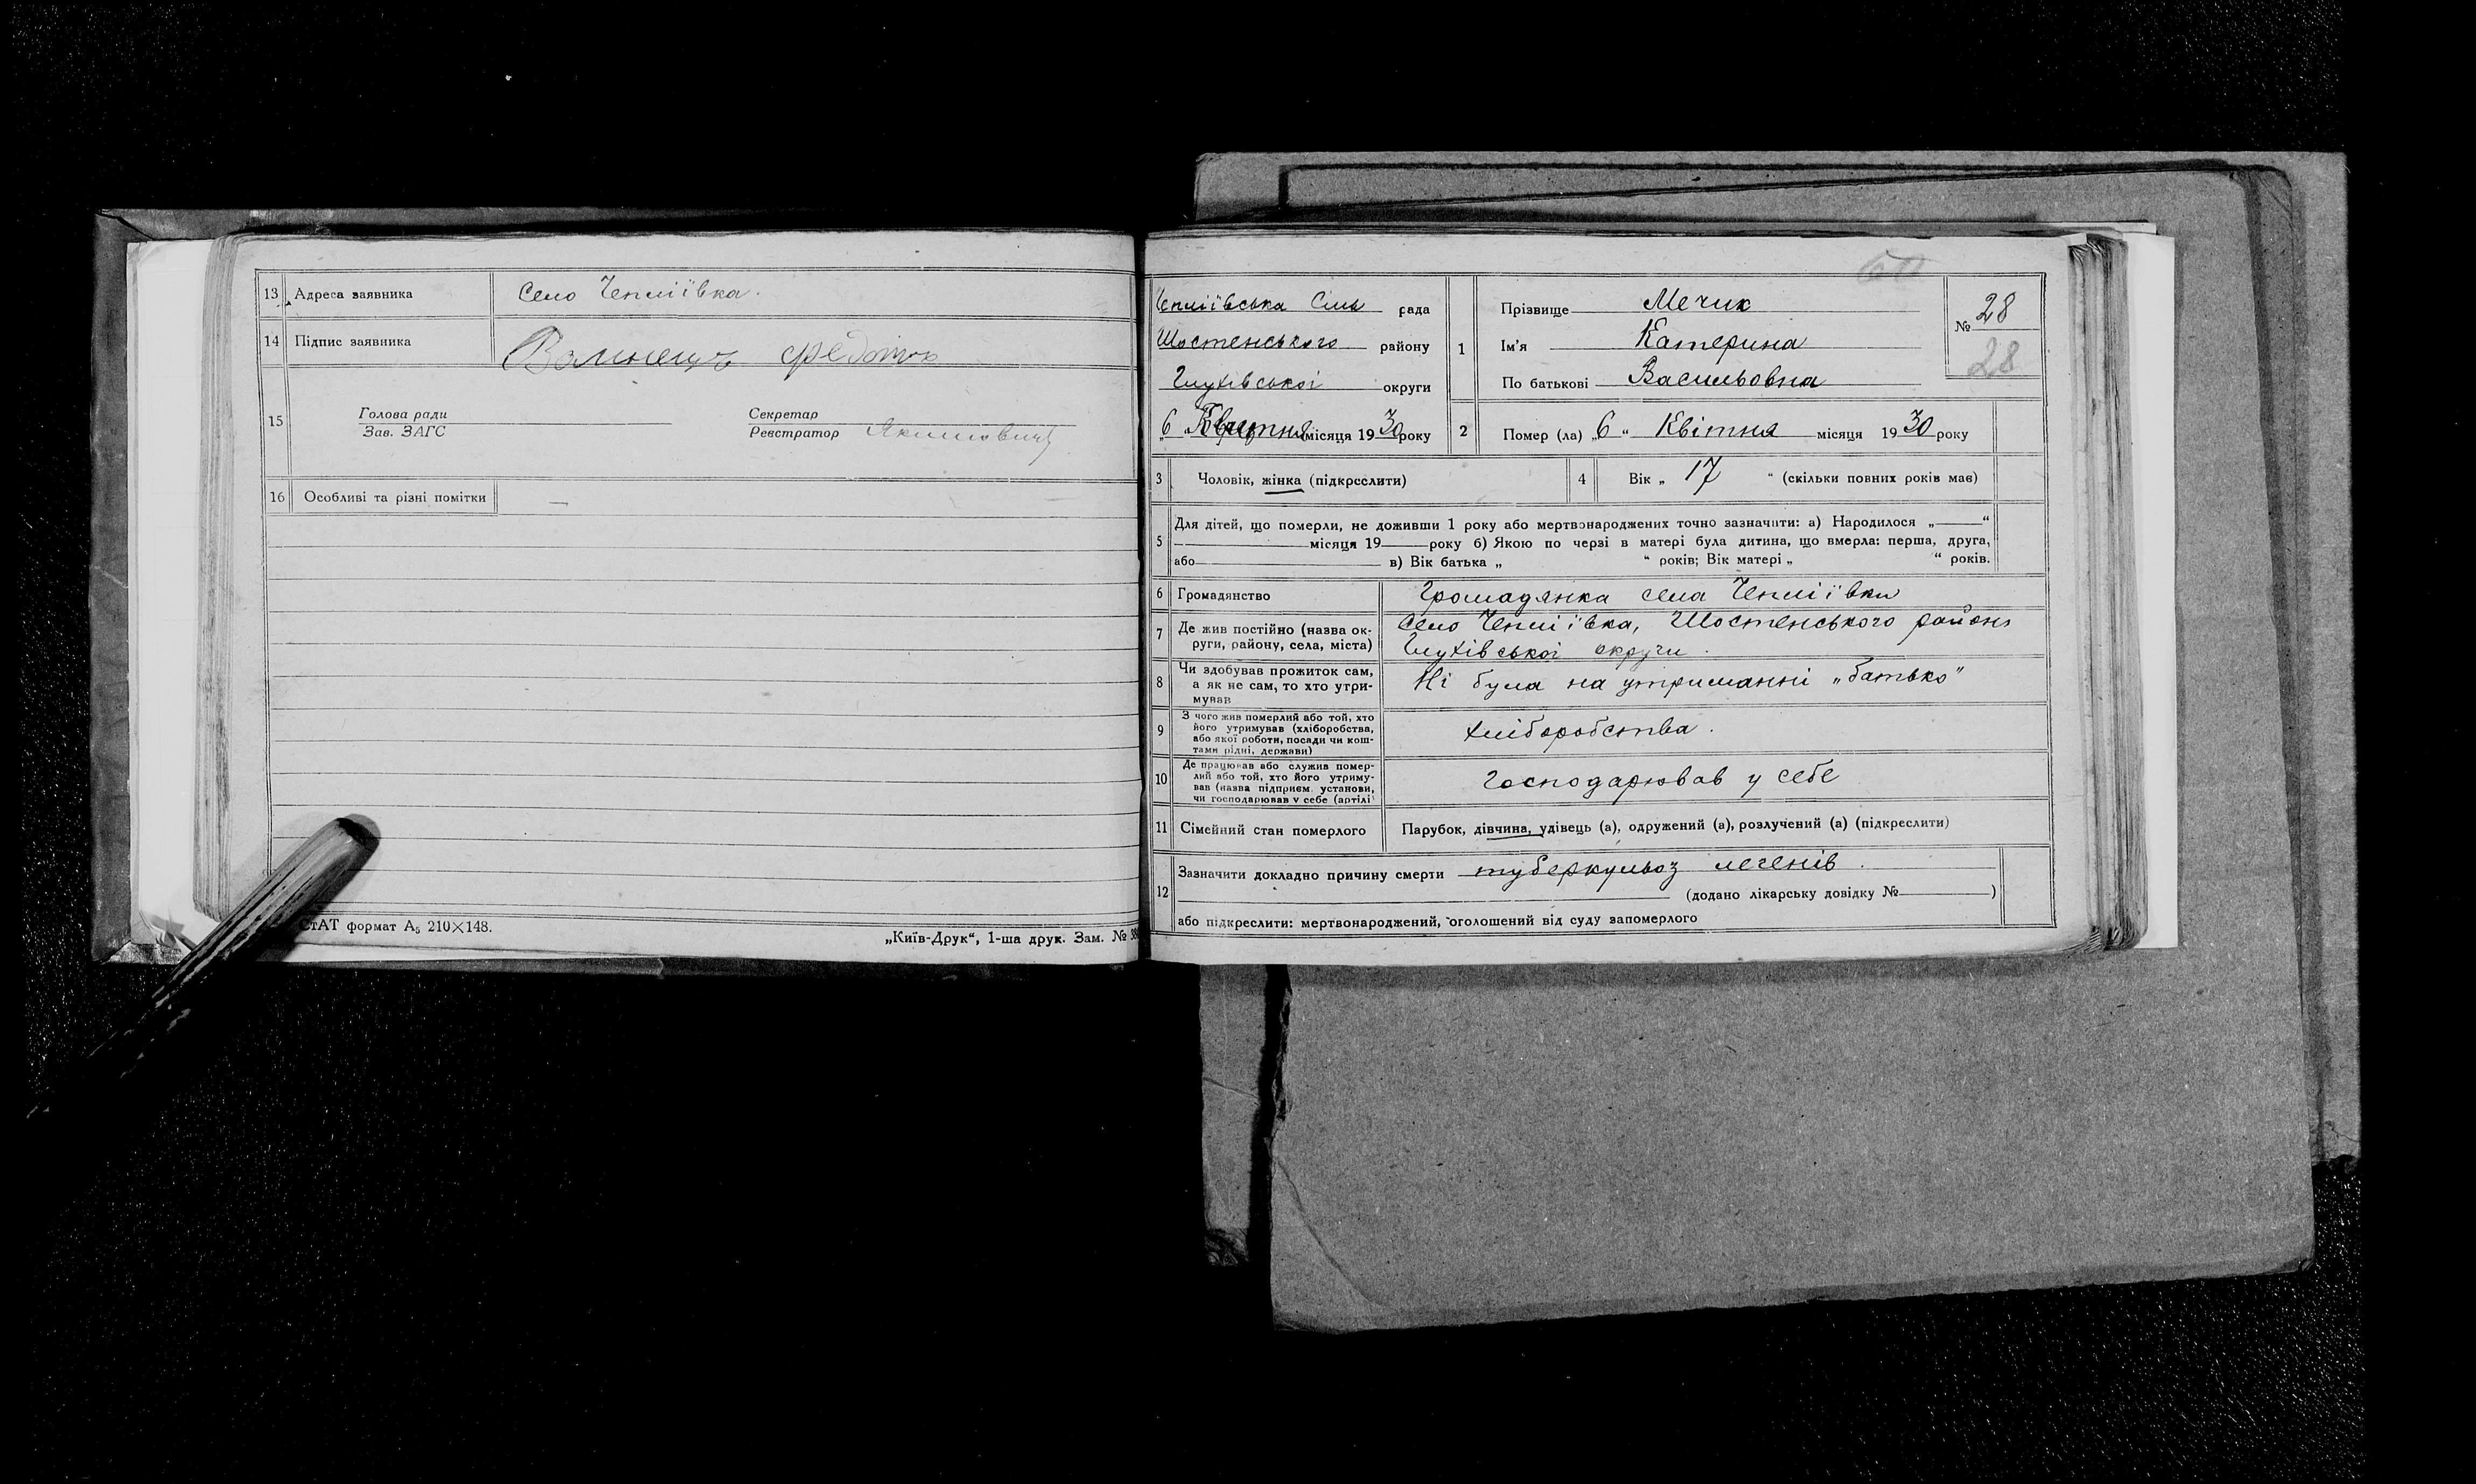 13 Адреса заявника Село Чепліївка.
14 Підпис заявника
15 Голова ради
Зав. ЗАГС
Секретар
Реєстратор Якимович
16 Особливі та різні помітки —
СтАТ формат А₅ 210×148.
„Київ-Друк“, 1-ша друк. Зам. №
60
Чепліївська Сіль рада
Шостенського району
Глухівської округи
„6 Квітня місяця 1930 року
1 Прізвище Мечик
Ім'я Катерина
По батькові Васильовна
№ 28
28
2 Помер (ла) „6“ Квітня місяця 1930 року
3 Чоловік, жінка (підкреслити)
4 Вік „ 17 “ (скільки повних років має)
5 Для дітей, що померли, не доживши 1 року або мертвонароджених точно зазначити: а) Народилося „——“
———місяця 19——року б) Якою по черзі в матері була дитина, що вмерла: перша, друга,
або——— в) Вік батька „ “ років; Вік матері „ “ років.
6 Громадянство Громадянка села Чепліївки
7 Де жив постійно (назва ок-
руги, району, села, міста)
село Чепліївка, Шостенського району
Глухівської округи.
8 Чи здобував прожиток сам,
а як не сам, то хто утри-
мував
Ні була на утриманні „батько“
9 З чого жив померлий або той, хто
його утримував (хліборобства,
або якої роботи, посади чи кош-
тами рідні, держави)
хліборобства.
10 Де працював або служив помер-
лий або той, хто його утриму-
вав (назва підприєм. установи,
чи господарював у себе (артілі)
Господарював у себе
11 Сімейний стан померлого Парубок, дівчина, удівець (а), одружений (а), розлучений (а) (підкреслити)
12 Зазначити докладно причину смерти туберкульоз легенів.
(додано лікарську довідку №———)
або підкреслити: мертвонароджений, оголошений від суду запомерлого